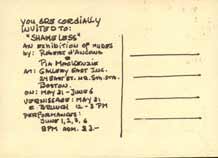 YOU ARE CORDIALLY
INVITED TO:
"SHAMELESS"
AN EXHIBITION OF NUDES
BY: ROBERT D'ANCONA
& PIA MACKENZIE
AT: GALLERY EAST INC.
24 EAST ST. NR. STA. STA.
BOSTON.
ON: MAY 31 - JUNE 6
VERNISSAGE: MAY 31
& BRUNCH 12 - 3 PM
PERFORMANCES:
JUNE 1, 2, 5, 6
8 PM ADM. $3.-